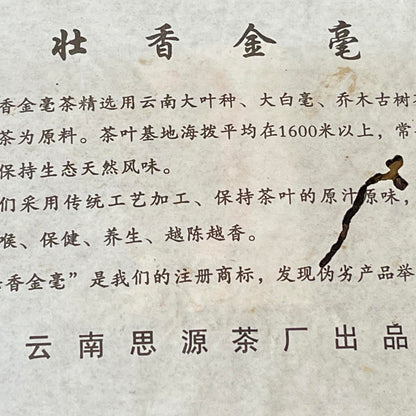 壮香金毫
香金毫茶精选用云南大叶种、大白毫、乔木古树
茶为原料。茶叶基地海拨平均在1600米以上，常
保持生态天然风味。
们采用传统工艺加工、保持茶叶的原汁原味，
喉、保健、养生、越陈越香。
香金毫”是我们的注册商标，发现伪劣产品举
云南思源茶厂出品